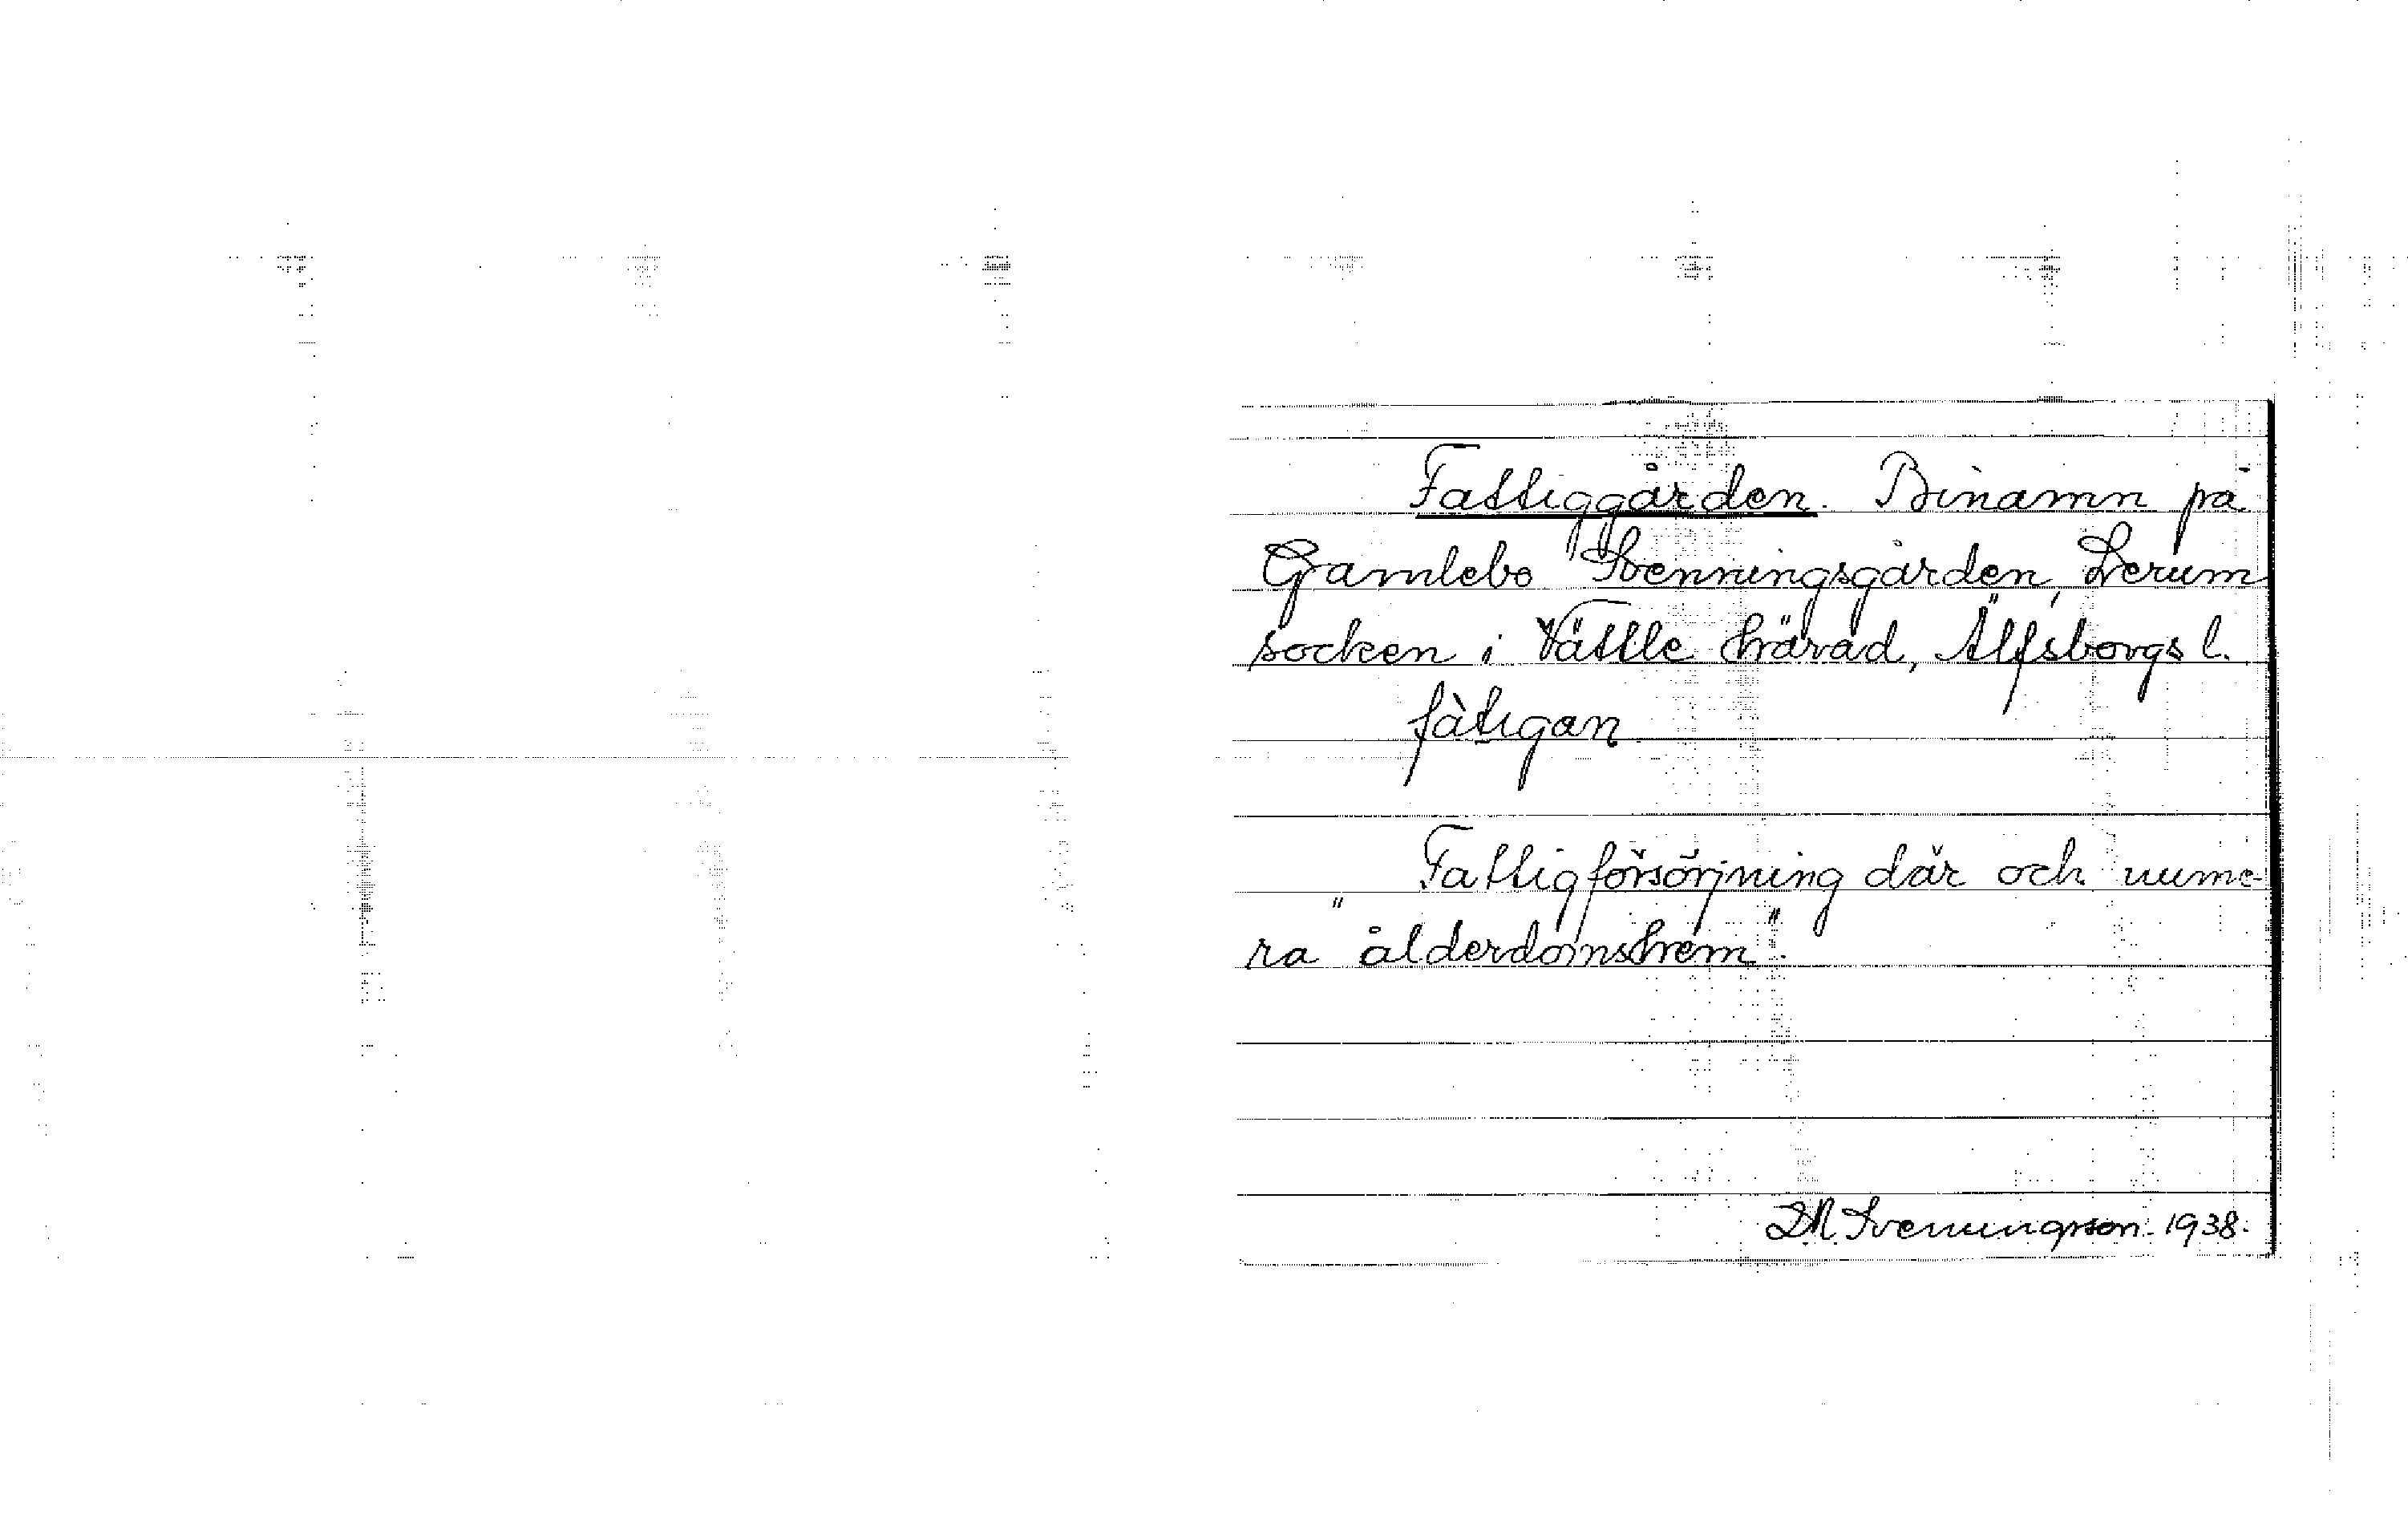 Fattiggården. Binamn på
Gamlebo Svenningsgården, Lerum
socken i Vättle härad, Älfsborgs l.
fàtigan
Fattigförsörjning där och nume-
ra "ålderdomshem".
Svenningsson 1938.